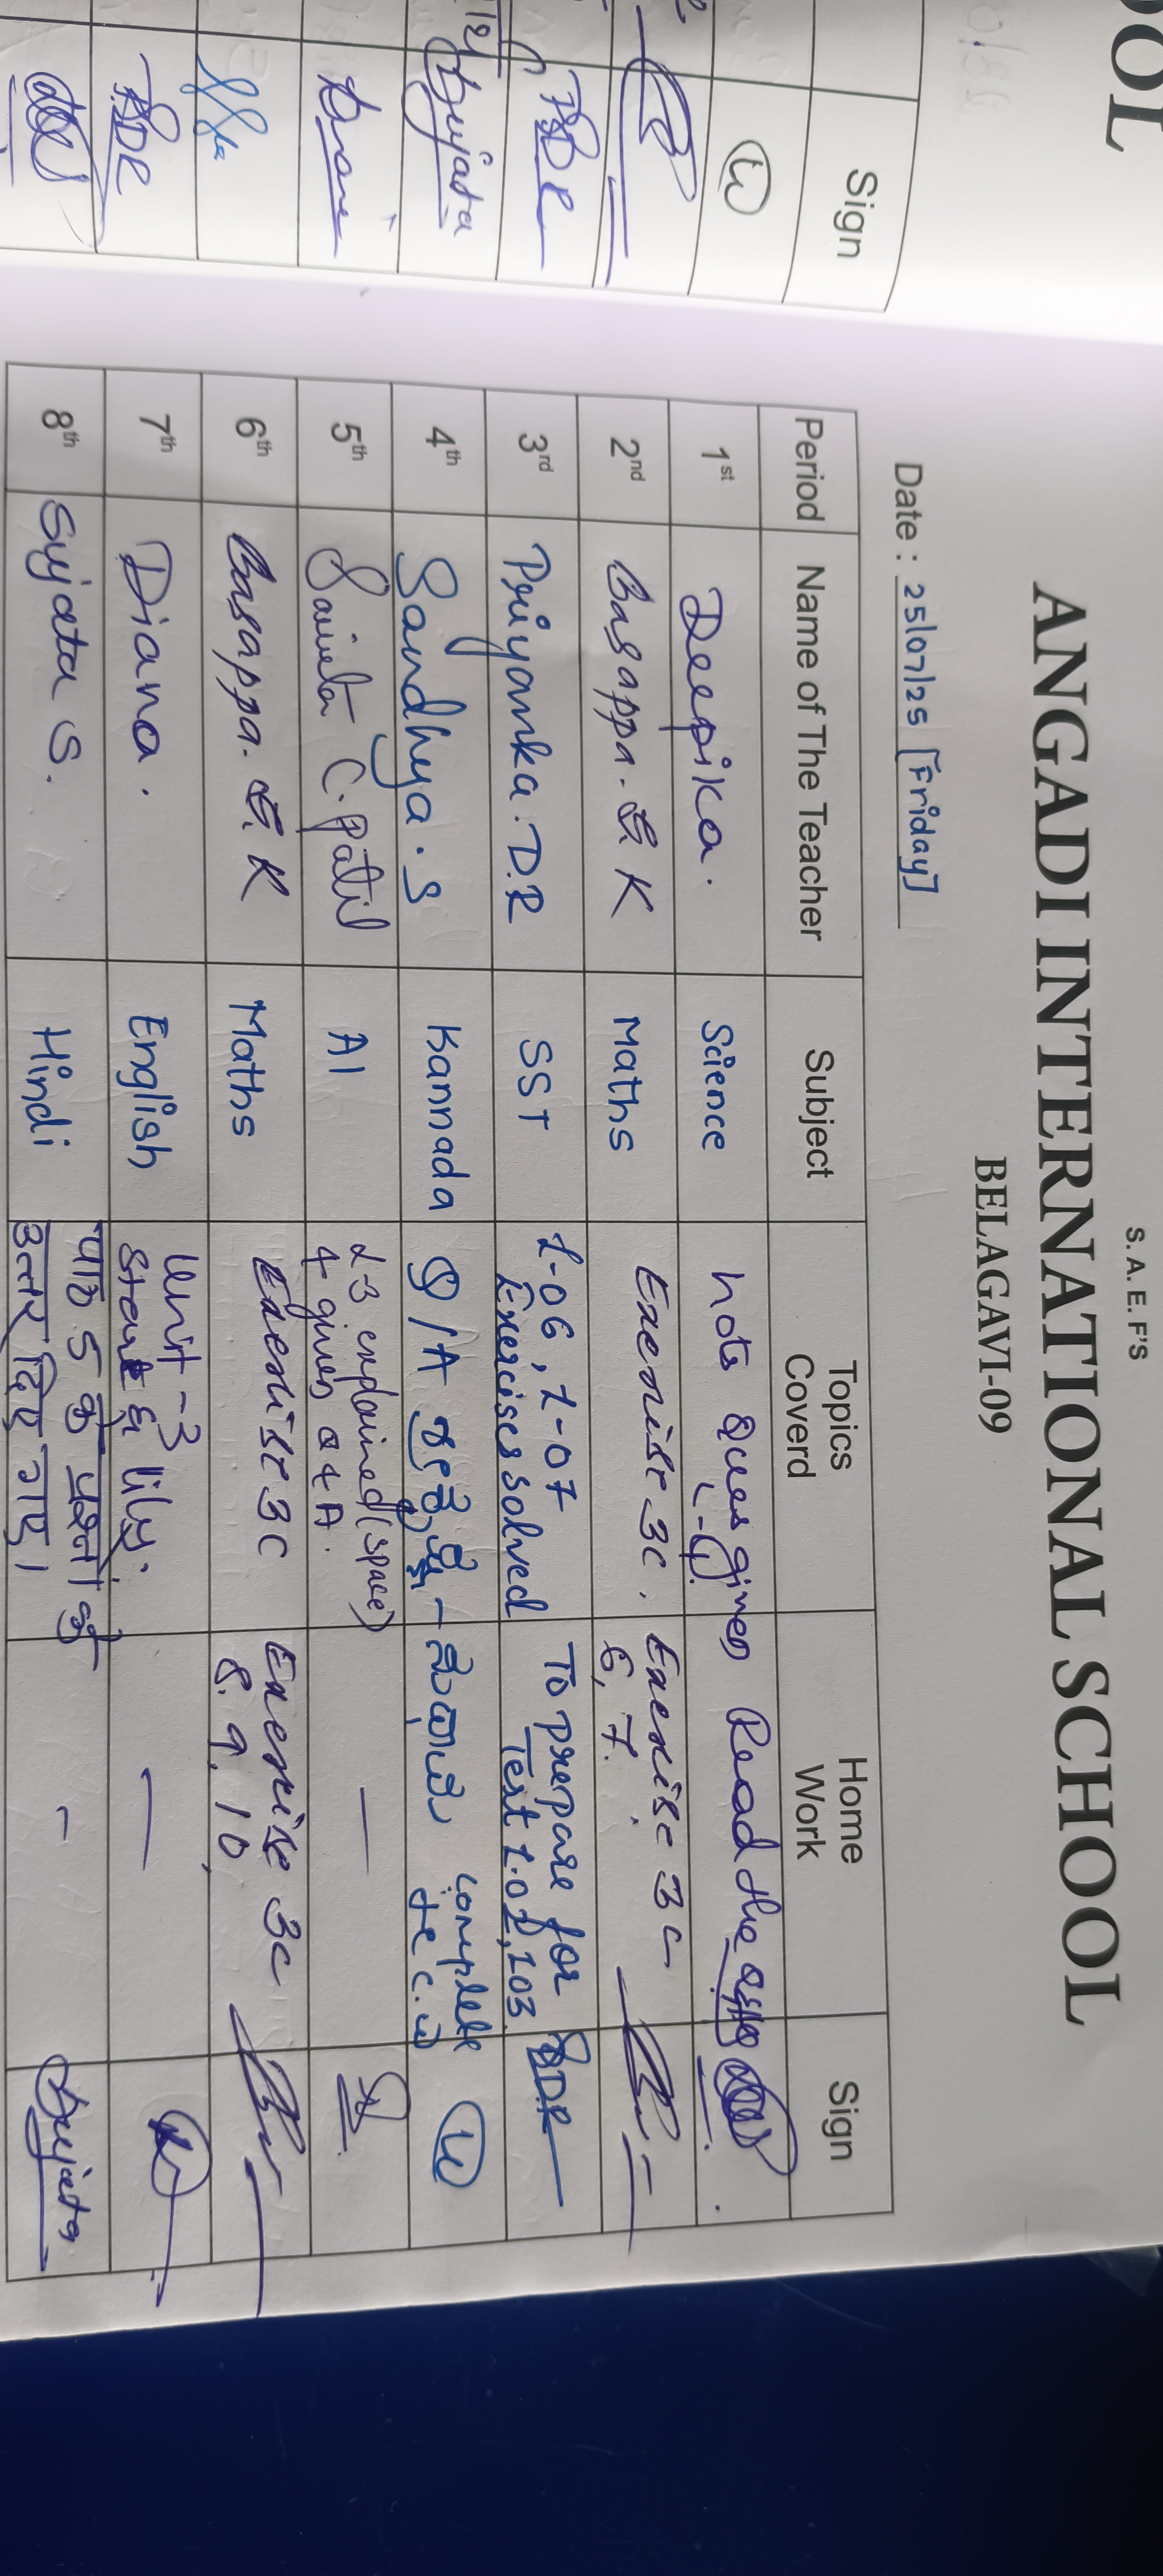 OOL
Sign
PSDR
Sujata
PSDR
S. A. E. F'S
ANGADI INTERNATIONAL SCHOOL
BELAGAVI-09
Date : 25/07/25 [Friday]
Period Name of The Teacher Subject Topics Coverd Home Work Sign
1st Deepika. Science Note Ques given L-6 Read the
2nd Basappa. K Maths Exercise 3C. Exercise 3C
6, 7.
3rd Priyanka. D.R SST L-06, L-07 To prepare for
Exercises solved Test L.02, L03 PSDR
4th Sandhya. S Kannada Q/A complete
the c.w
5th Savita C. Patil AI L-3 explained (space)
4 given Q & A. —
6th Basappa. K Maths Exercise 3C Exercise 3C
8. 9. 10.
7th Diana. English Unit-3
started lily. —
8th Sujata S. Hindi पाठ 5 के प्रश्नों के - Sujata
उत्तर दिए गए।